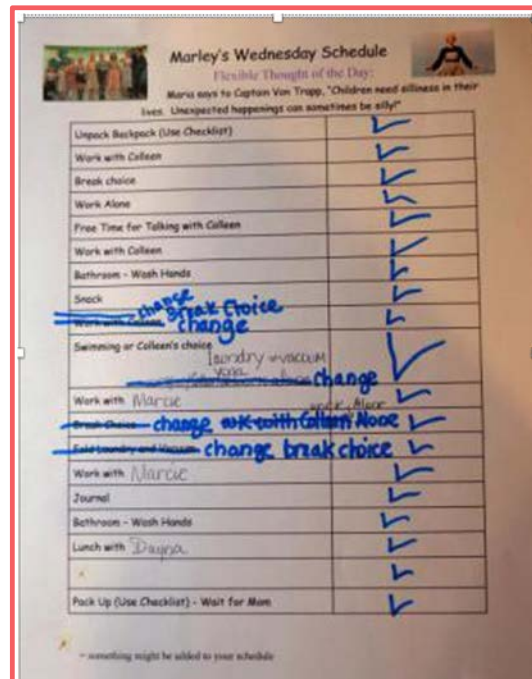 Marley's Wednesday Schedule
Flexible Thought of the Day:
Maria says to Captain Von Trapp, "Children need silliness in their
lives. Unexpected happenings can sometimes be silly!"
Unpack Backpack (Use Checklist)
Work with Colleen
Break choice
Work Alone
Free Time for Talking with Colleen
Work with Colleen
Bathroom - Wash Hands
Snack
change Break Choice
Work with Colleen change
Swimming or Colleen's choice
laundry + vacuum
yoga
change
Work with Marcie
work Alone
Break Choice change wk with Colleen Alone
Fold Laundry and Vacuum change break choice
Work with Marcie
Journal
Bathroom - Wash Hands
Lunch with Dayna
Pack Up (Use Checklist) - Wait for Mom
= something might be added to your schedule